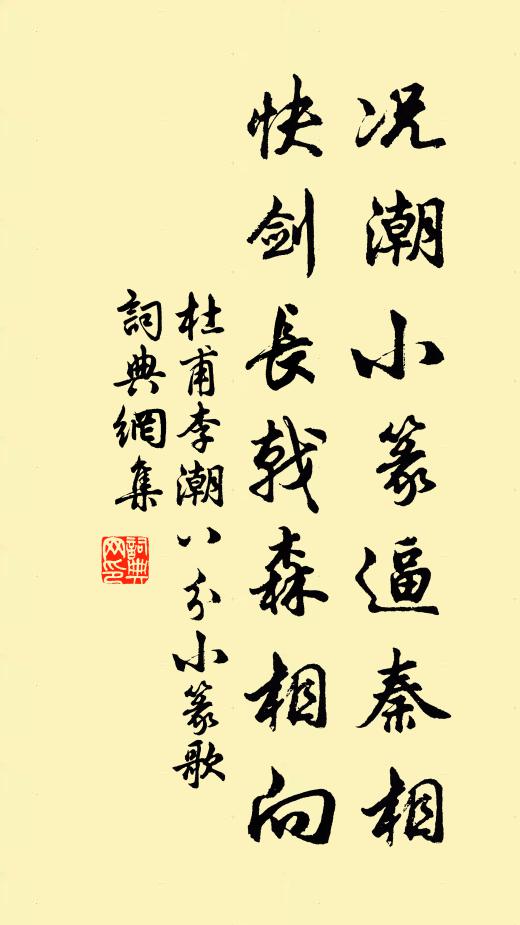 况潮小篆逼秦相
快剑長戟森相向
杜甫李潮八分小篆歌
詞典網集
詞典
网印